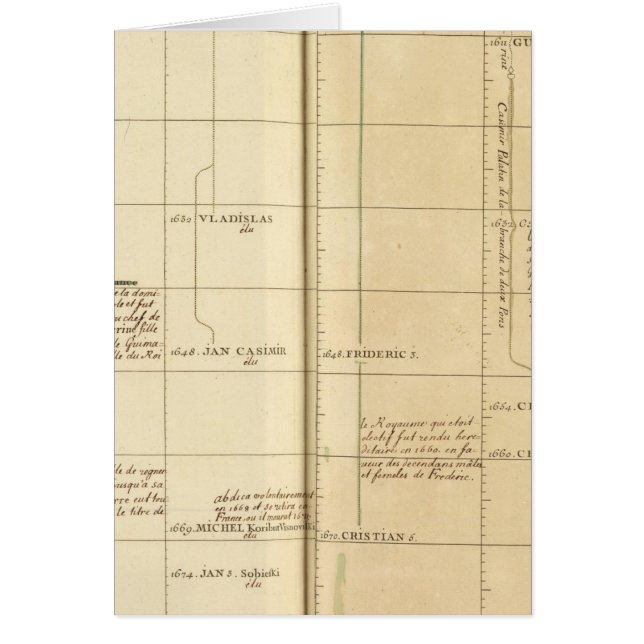 1632. VLADISLAS
élu
e la domi-
le et fut
u chef de
rine fille
le Guima-
lle du Roi
1648. JAN CASIMIR
élu
ile de regner
usqu'a sa
rre eut tou
le titre de
abdica volontairement
en 1668 et se retira en
France, ou il mourut
1669. MICHEL Koribut Visnoviski
élu
1674. JAN 3. Sobieski
élu
1648. FRIDERIC 3.
le Royaume qui etoit
electif fut rendu here-
ditaire en 1660. en fa-
ueur des decendans mâles
et femeles de Frederic.
1670. CRISTIAN 5.
1611. GU
rine
Casimir Palatin de la
branche de deux Pons
1632.
1654. C
1660. C